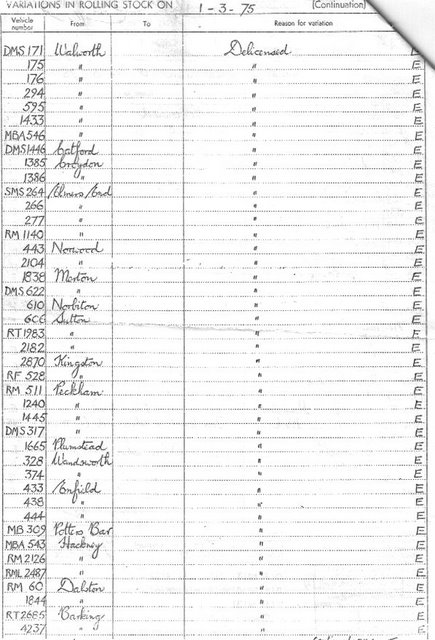 VARIATIONS IN ROLLING STOCK ON 1-3-75 [Continuation]
Vehicle number From To Reason for variation
DMS 171 Walworth Delicensed E
175 " " E
176 " " E
294 " " E
595 " " E
1433 " " E
MBA 546 " " E
DMS 1446 Catford " E
1385 Croydon " E
1386 " " E
SMS 264 Elmers End " E
266 " " E
277 " " E
RM 1140 " " E
443 Norwood " E
2104 " " E
1838 Merton " E
DMS 622 " " E
610 Norbiton " E
606 Sutton " E
RT 1983 " " E
2182 " " E
2870 Kingston " E
RF 528 " " E
RM 511 Peckham " E
1240 " " E
1445 " " E
DMS 317 " " E
1665 Plumstead " E
328 Wandsworth " E
374 " " E
433 Enfield " E
438 " " E
444 " " E
MB 309 Potters Bar " E
MBA 543 Hackney " E
RM 2126 " " E
RML 2487 " " E
RM 60 Dalston " E
1844 " " E
RT 2685 Barking " E
4237 " " E